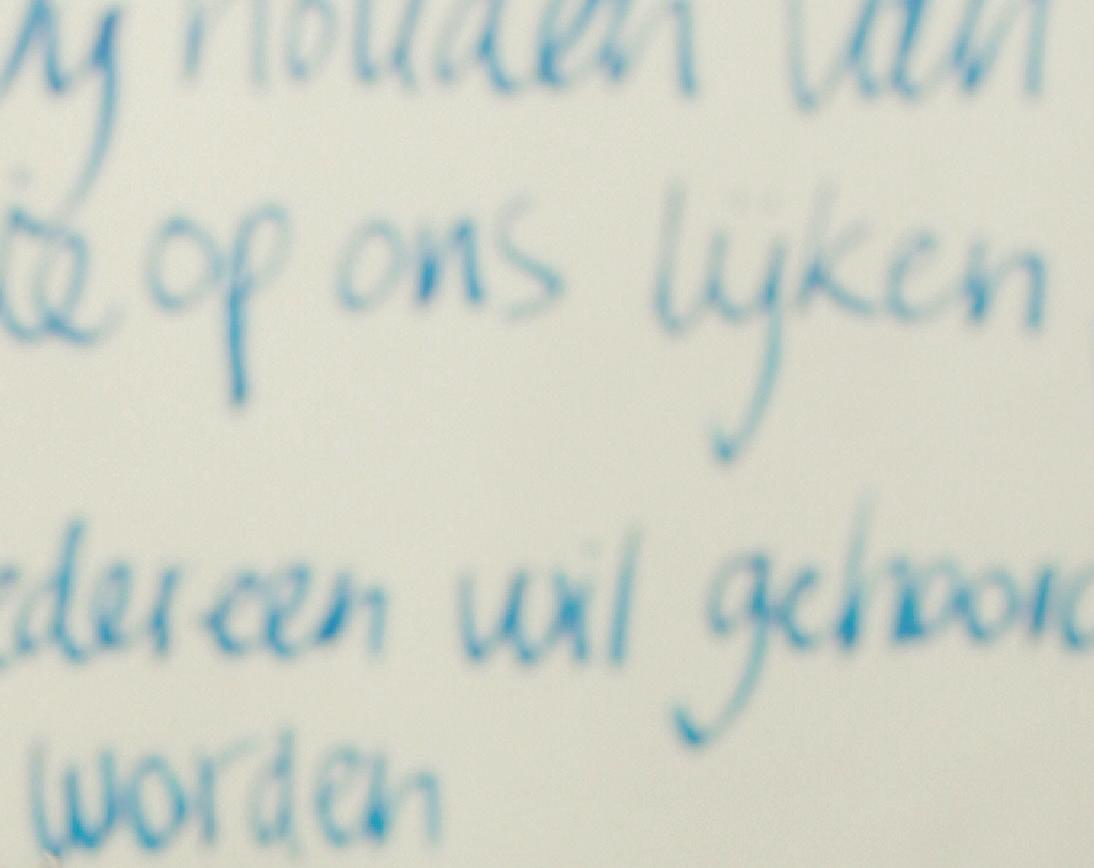 wij houden van
die op ons lijken
edereen wil gehoord
worden